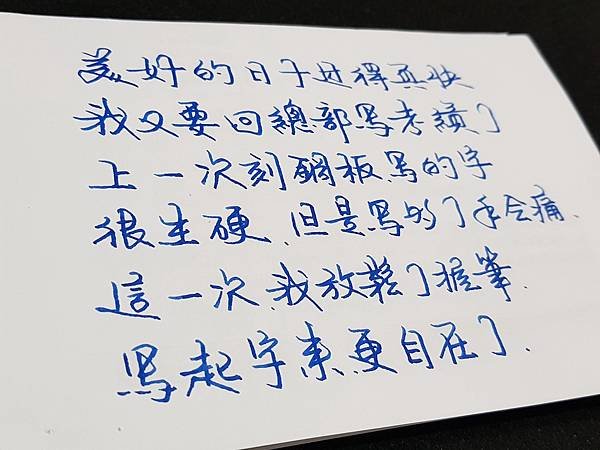 美好的日子过得真快
我又要回總部写考績了
上一次刻鋼板写的字
很生硬、但是写多了手会痛、
這一次、我放鬆了握筆、
写起字来更自在了、